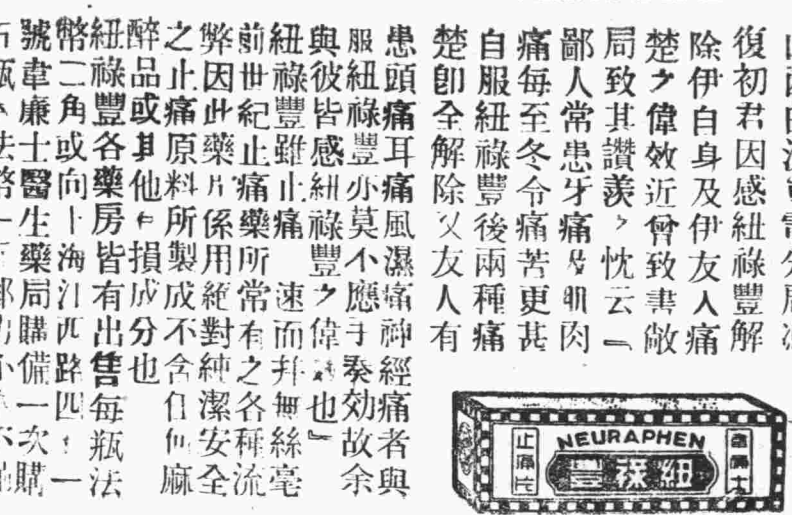 復初君因感紐祿豐解
除伊自身及伊友人痛
楚之偉效近曾致書敝
局致其讚羨之忱云『
鄙人常患牙痛及肌肉
痛每至冬令痛苦更甚
自服紐祿豐後兩種痛
楚卽全解除又友人有
患頭痛耳痛風濕痛神經痛者與
服紐祿豐亦莫不應手奏効故余
與彼皆感紐祿豐之偉 也』
紐祿豐雖止痛 速而并無絲毫
前世紀止痛藥所常有之各種流
弊因此藥片係用絕對純潔安全
之止痛原料所製成不含任何麻
醉品或其他有損成分也
紐祿豐各藥房皆有出售每瓶法
幣二角或向上海江西路四 一
號韋廉士醫生藥局購備一次購
NEURAPHEN
紐祿豐
止痛片